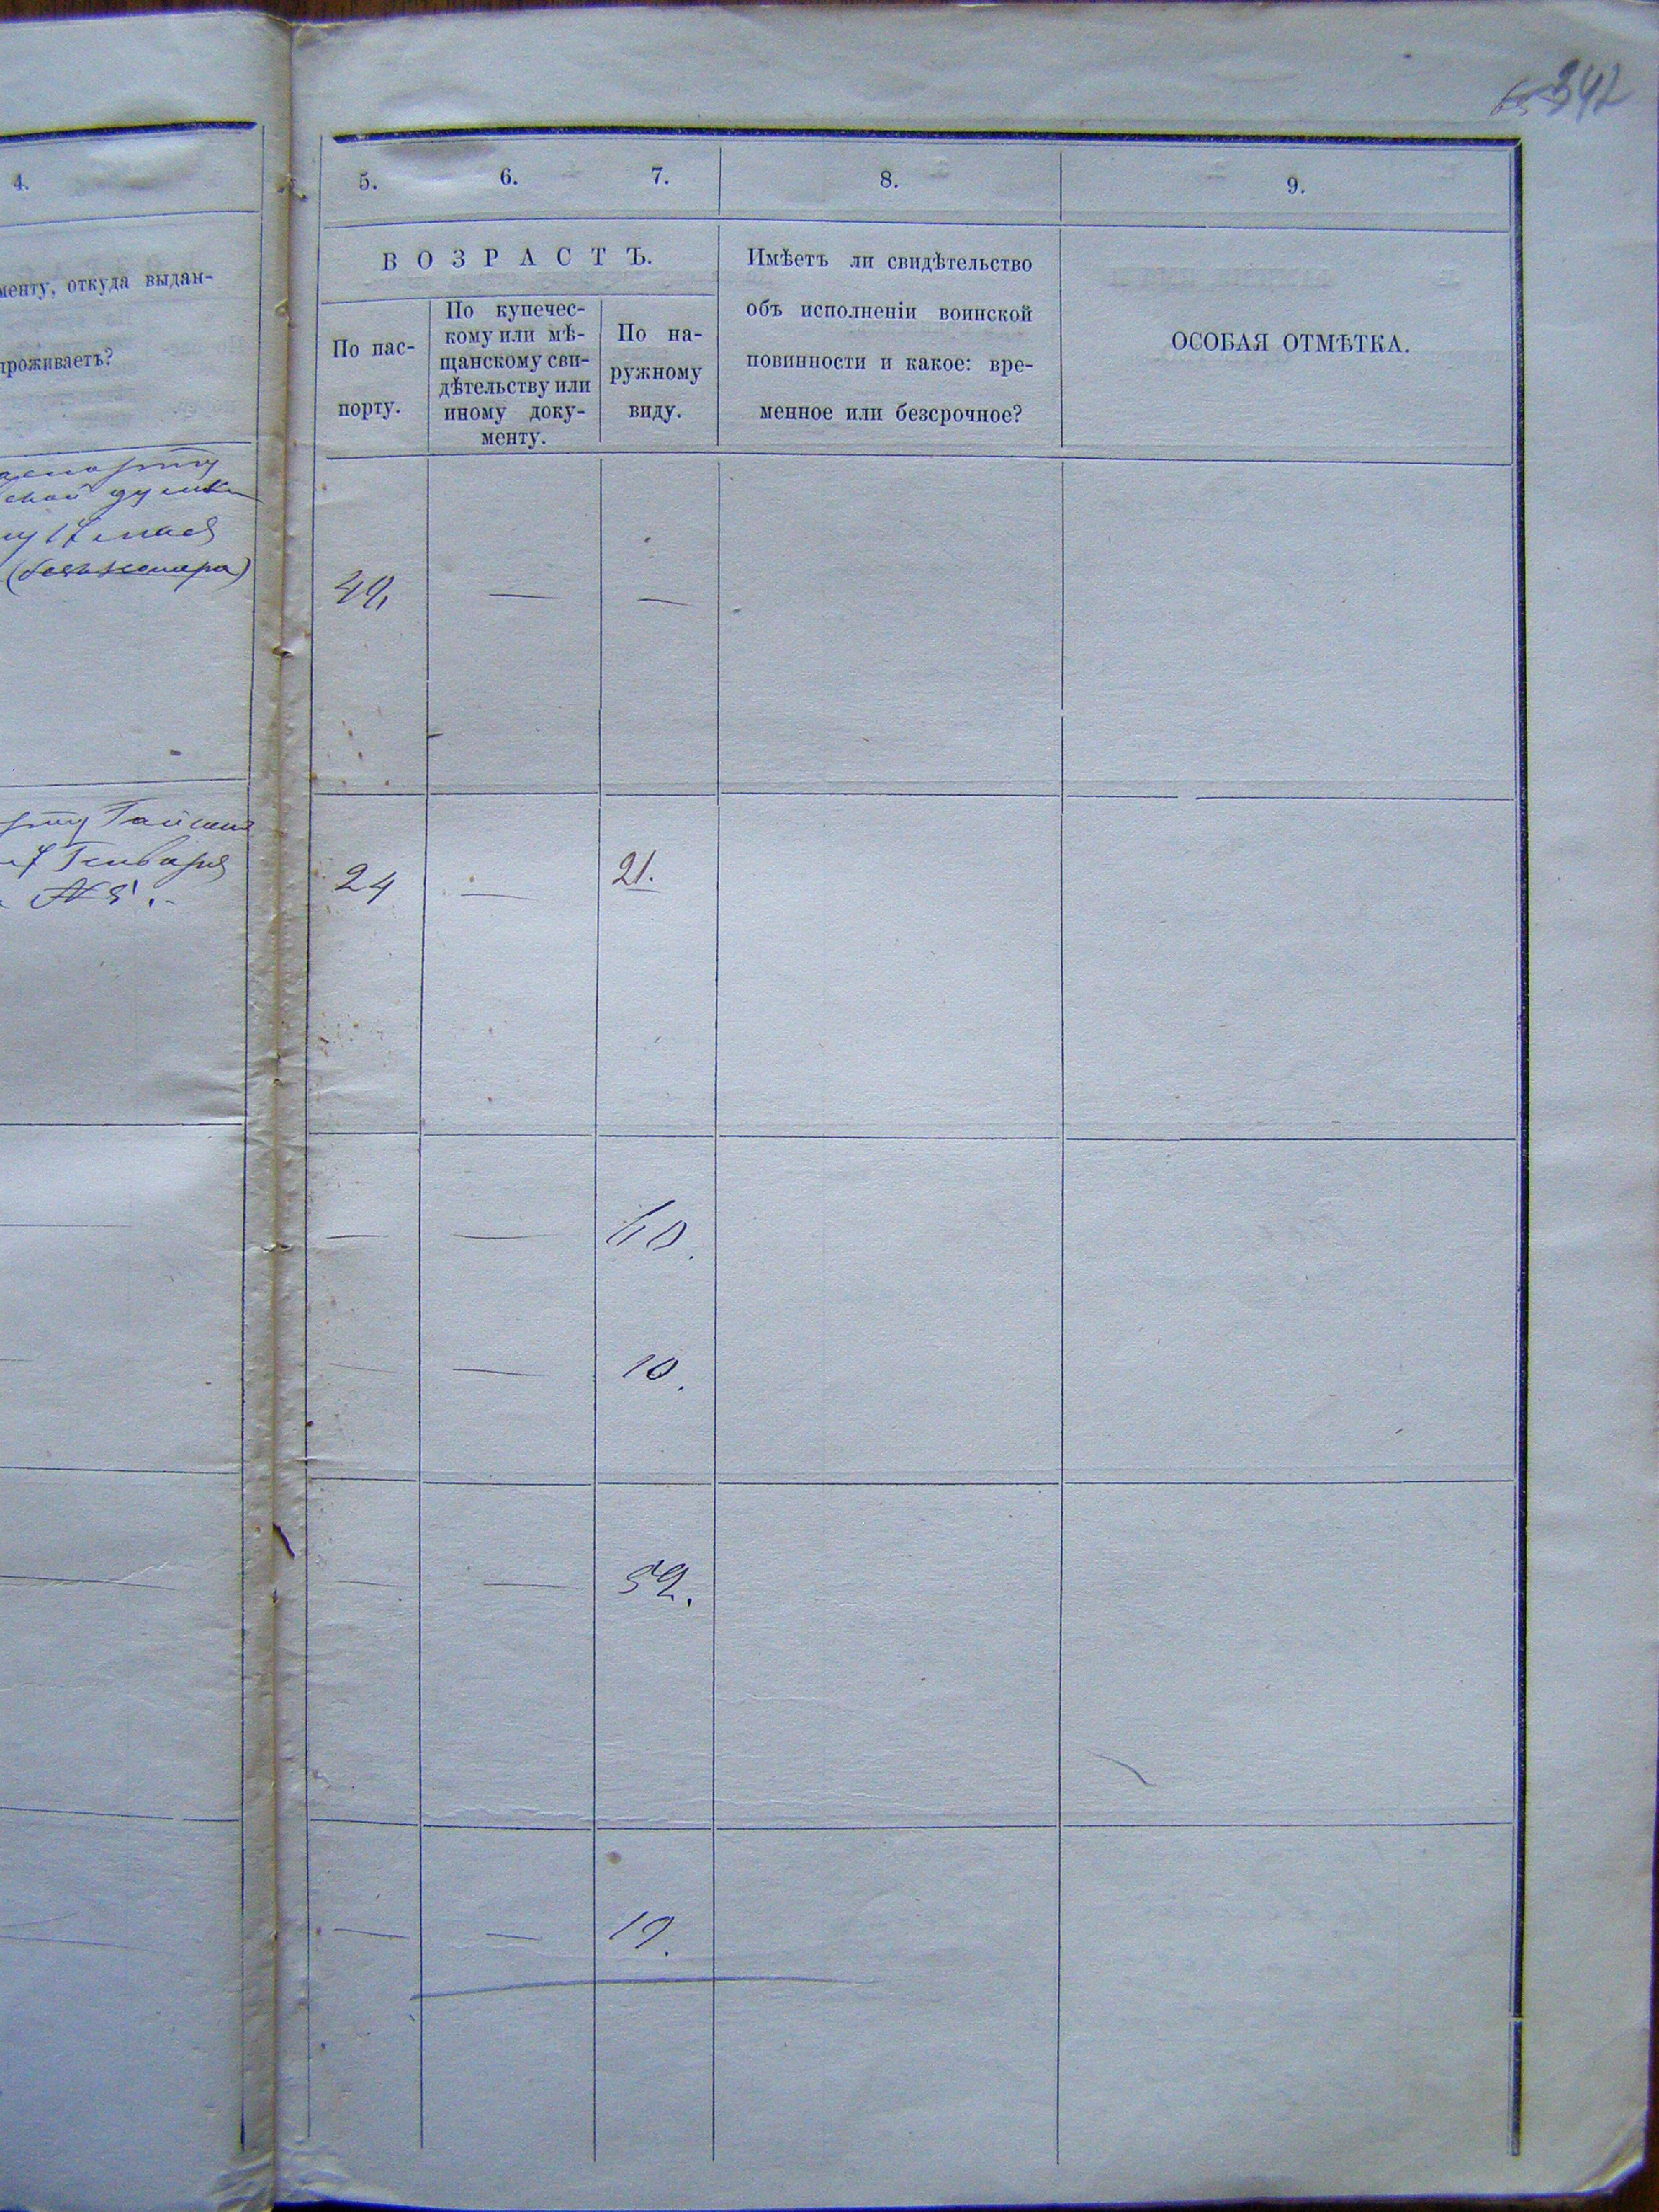 342
4.
менту, откуда выдан-
проживаетъ?
17 мая
Гайсин
7 Генваря
№ 5.
5. 6. 7. 8. 9.
ВОЗРАСТЪ.
По пас-
порту.
По купечес-
кому или мѣ-
щанскому сви-
дѣтельству или
иному доку-
менту.
По на-
ружному
виду.
Имѣетъ ли свидѣтельство
объ исполненіи воинской
повинности и какое: вре-
менное или безсрочное?
ОСОБАЯ ОТМѢТКА.
— —
24 — 21.
— —
— — 10.
— — 52.
— — 19.